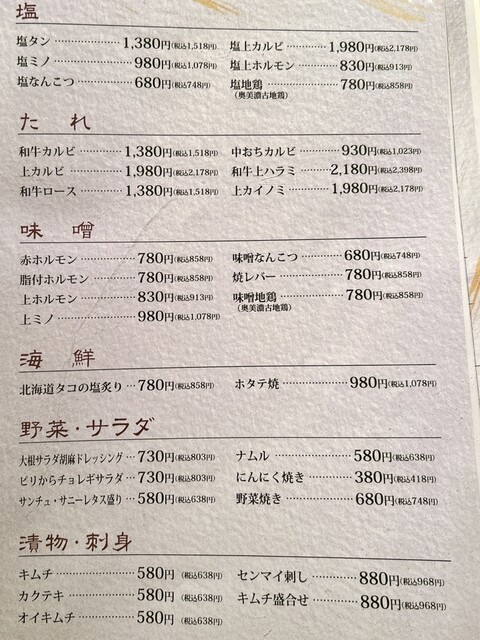 塩
塩タン 1,380円(税込1,518円) 塩上カルビ 1,980円(税込2,178円)
塩ミノ 980円(税込1,078円) 塩上ホルモン 830円(税込913円)
塩なんこつ 680円(税込748円) 塩地鶏 780円(税込858円)
(奥美濃古地鶏)
たれ
和牛カルビ 1,380円(税込1,518円) 中おちカルビ 930円(税込1,023円)
上カルビ 1,980円(税込2,178円) 和牛上ハラミ 2,180円(税込2,398円)
和牛ロース 1,380円(税込1,518円) 上カイノミ 1,980円(税込2,178円)
味噌
赤ホルモン 780円(税込858円) 味噌なんこつ 680円(税込748円)
脂付ホルモン 780円(税込858円) 焼レバー 780円(税込858円)
上ホルモン 830円(税込913円) 味噌地鶏 780円(税込858円)
(奥美濃古地鶏)
上ミノ 980円(税込1,078円)
海鮮
北海道タコの塩炙り 780円(税込858円) ホタテ焼 980円(税込1,078円)
野菜・サラダ
大根サラダ胡麻ドレッシング 730円(税込803円) ナムル 580円(税込638円)
ピリからチョレギサラダ 730円(税込803円) にんにく焼き 380円(税込418円)
サンチュ・サニーレタス盛り 580円(税込638円) 野菜焼き 680円(税込748円)
漬物・刺身
キムチ 580円(税込638円) センマイ刺し 880円(税込968円)
カクテキ 580円(税込638円) キムチ盛合せ 880円(税込968円)
オイキムチ 580円(税込638円)